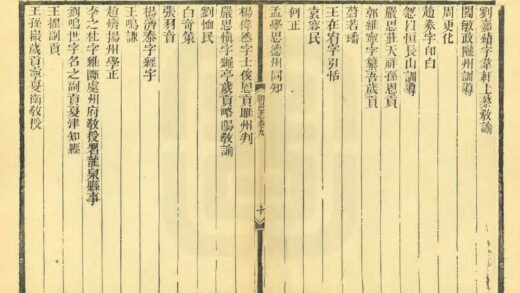 劉嘉績字韋軒上蔡教諭
閻敏政隴州訓導
周更化
趙泰字印白
忽以恒長山訓導
嚴思莊天祥孫恩貢
郭維寧字
吾歲貢
蔚若璠
王在宥字引恬
袁容民
何正
孟學思德州同知
朝邑志卷九
十
楊偉然字士俊恩貢雎州判
嚴思慎字
亭歲貢略陽教諭
劉蜡民
白奇策
張羽音
楊濟泰字經宇
王鳴謙
趙嬪揚州學正
李之杜字
處州府教授署龍泉縣事
劉鳴世字名之副貢夏津知縣
王擢副貢
王孫綬歲貢寧夏衛教授